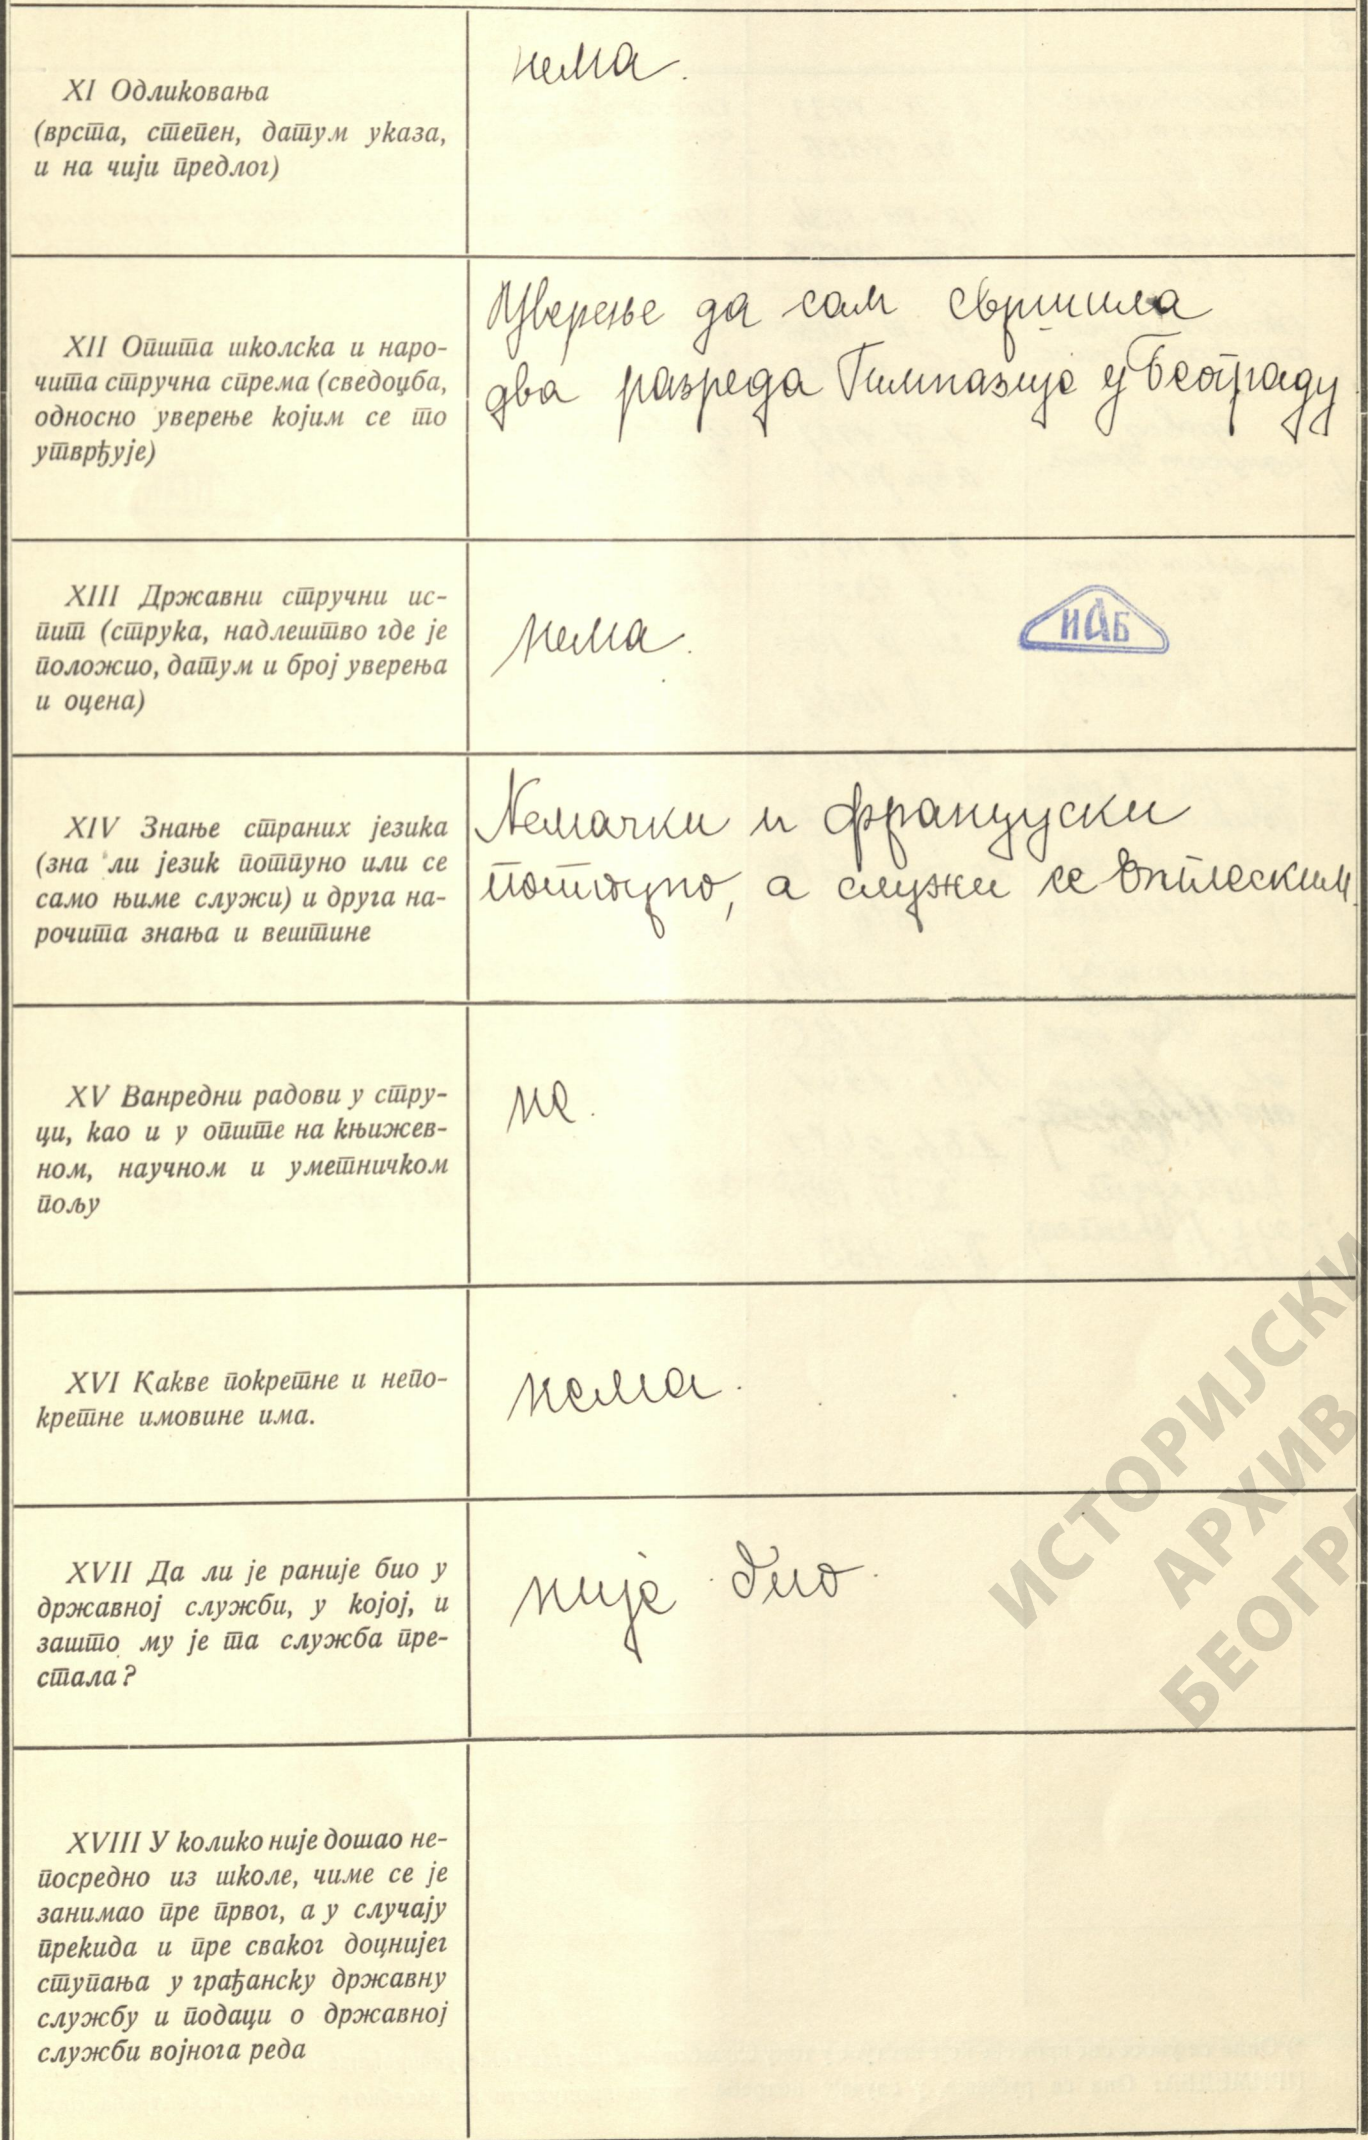 XI Одликовања
(врста, степен, датум указа,
и на чији предлог)
нема.
XII Општа школска и наро-
чита стручна спрема (сведоџба,
односно уверење којим се то
утврђује)
Уверење да сам свршила
два разреда Гимназије у Београду
XIII Државни стручни ис-
пит (струка, надлештво где је
положио, датум и број уверења
и оцена)
нема.
ИАБ
XIV Знање страних језика
(зна ли језик потпуно или се
само њиме служи) и друга на-
рочита знања и вештине
Немачки и француски
потпуно, а служи се Енглеским.
XV Ванредни радови у стру-
ци, као и у опште на књижев-
ном, научном и уметничком
пољу
не.
XVI Какве покретне и непо-
кретне имовине има.
нема.
XVII Да ли је раније био у
државној служби, у којој, и
зашто му је та служба пре-
стала?
није био.
XVIII У колико није дошао не-
посредно из школе, чиме се је
занимао пре првог, а у случају
прекида и пре сваког доцнијег
ступања у грађанску државну
службу и подаци о државној
служби војнога реда
ИСТОРИЈСКИ
АРХИВ
БЕОГРА